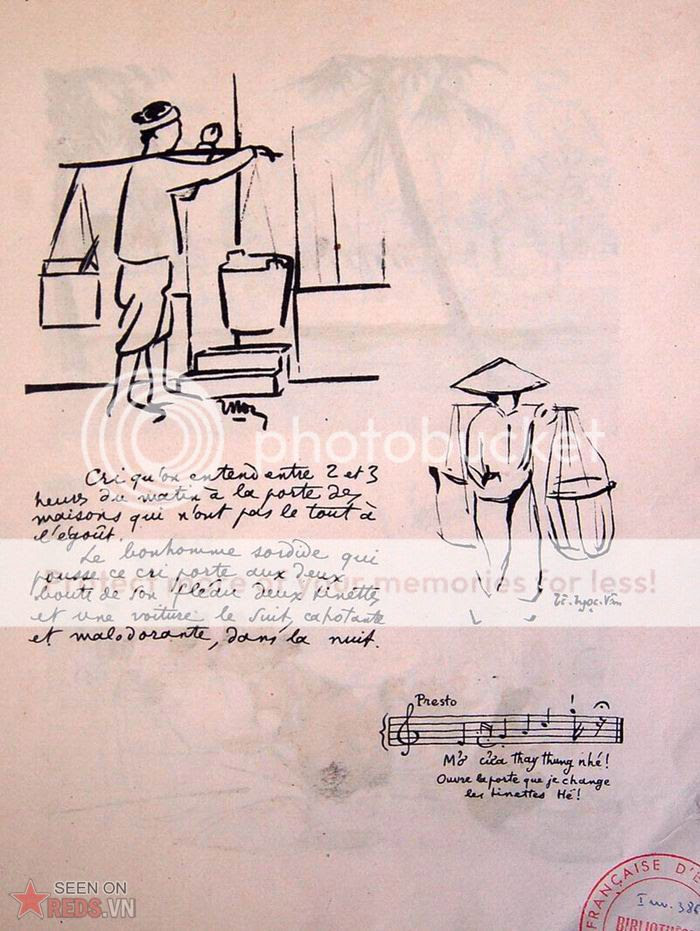 Cri qu'on entend entre 2 et 3
heures du matin à la porte des
maisons qui n'ont pas le tout à
l'égoût.
Le bonhomme sordide qui
pousse ce cri porte aux deux
bouts de son fléau deux tinettes
et une voiture le suit, cahotante
et malodorante, dans la nuit.
photobucket
Protect more of your memories for less!
Tô-Ngọc-Vân
Presto
Mở cửa thay thùng nhé!
Ouvre la porte que je change
les tinettes Hé!
SEEN ON
REDS.VN
FRANÇAISE D'E
Inv. 386
BIBLIOTHÈ